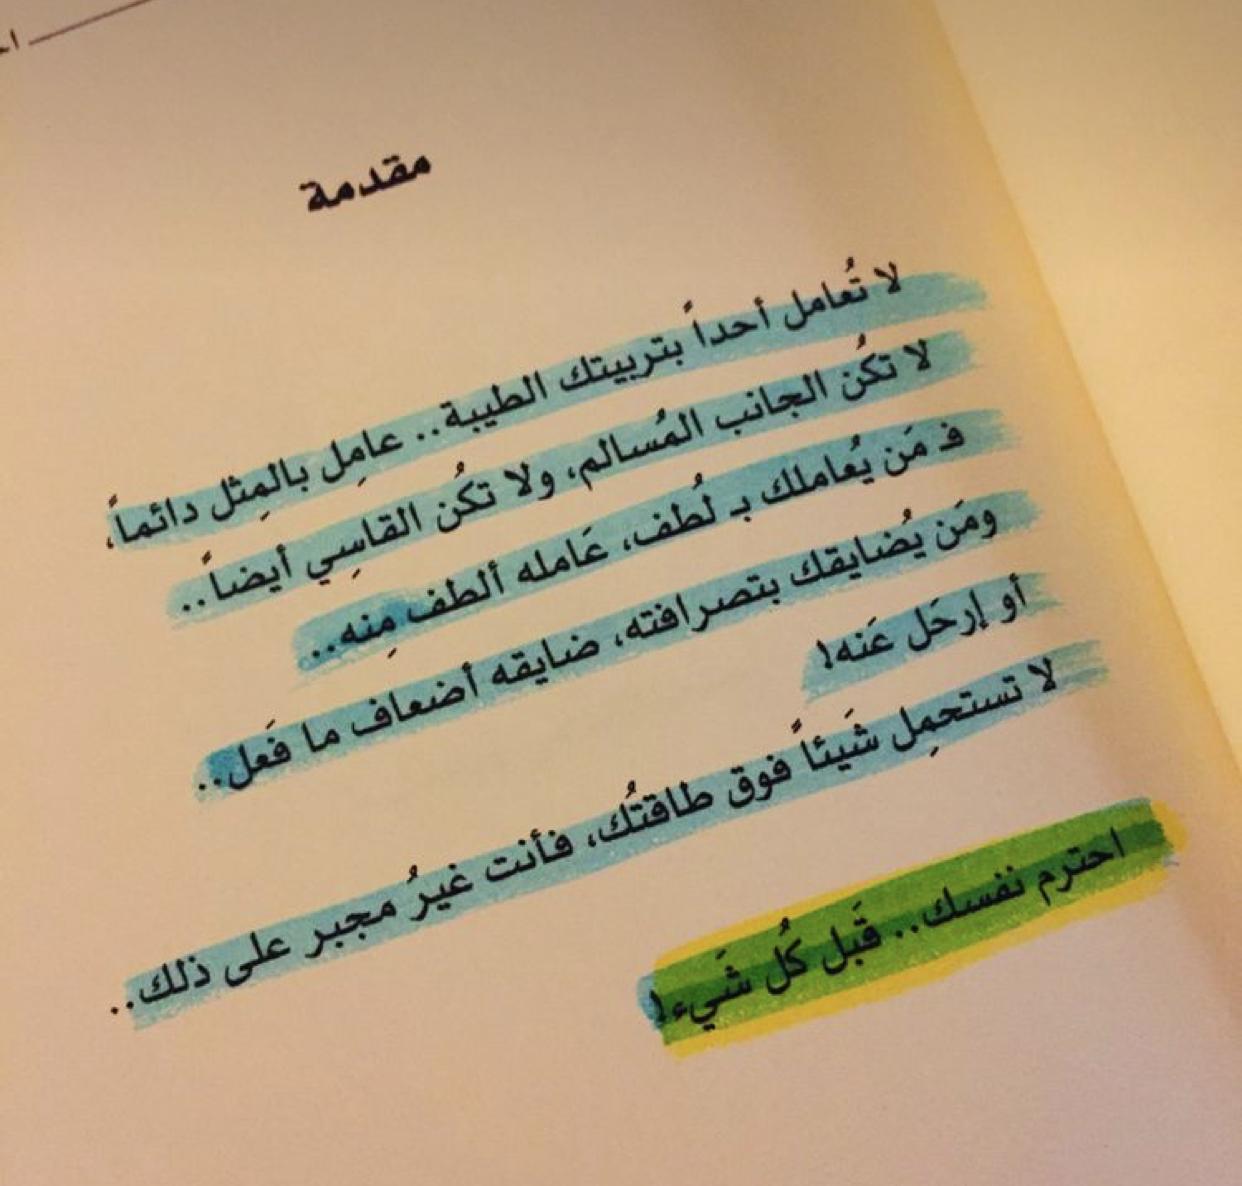 مقدمة
لا تُعامل أحداً بتربيتك الطيبة.. عامِل بالمِثل دائماً،
لا تكُن الجانب المُسالم، ولا تكُن القاسِي أيضاً..
فـ مَن يُعاملك بـ لُطف، عَامله ألطف مِنه..
ومَن يُضايقك بتصرافته، ضايقه أضعاف ما فَعل..
أو إرحَل عَنه!
لا تستحمِل شَيئاً فوق طاقتُك، فأنت غيرُ مجبر على ذلك..
احترم نفسك.. قَبل كُل شَيء!